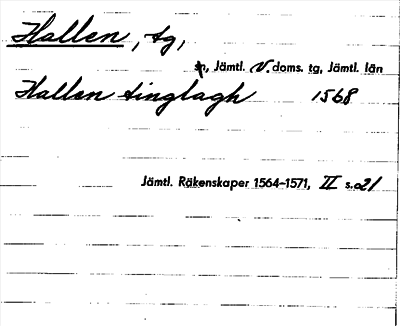 Hallen, tg,
sn, Jämtl. V. doms. tg, Jämtl. län
Hallen tinglagh 1568
Jämtl. Räkenskaper 1564–1571, II s. 21